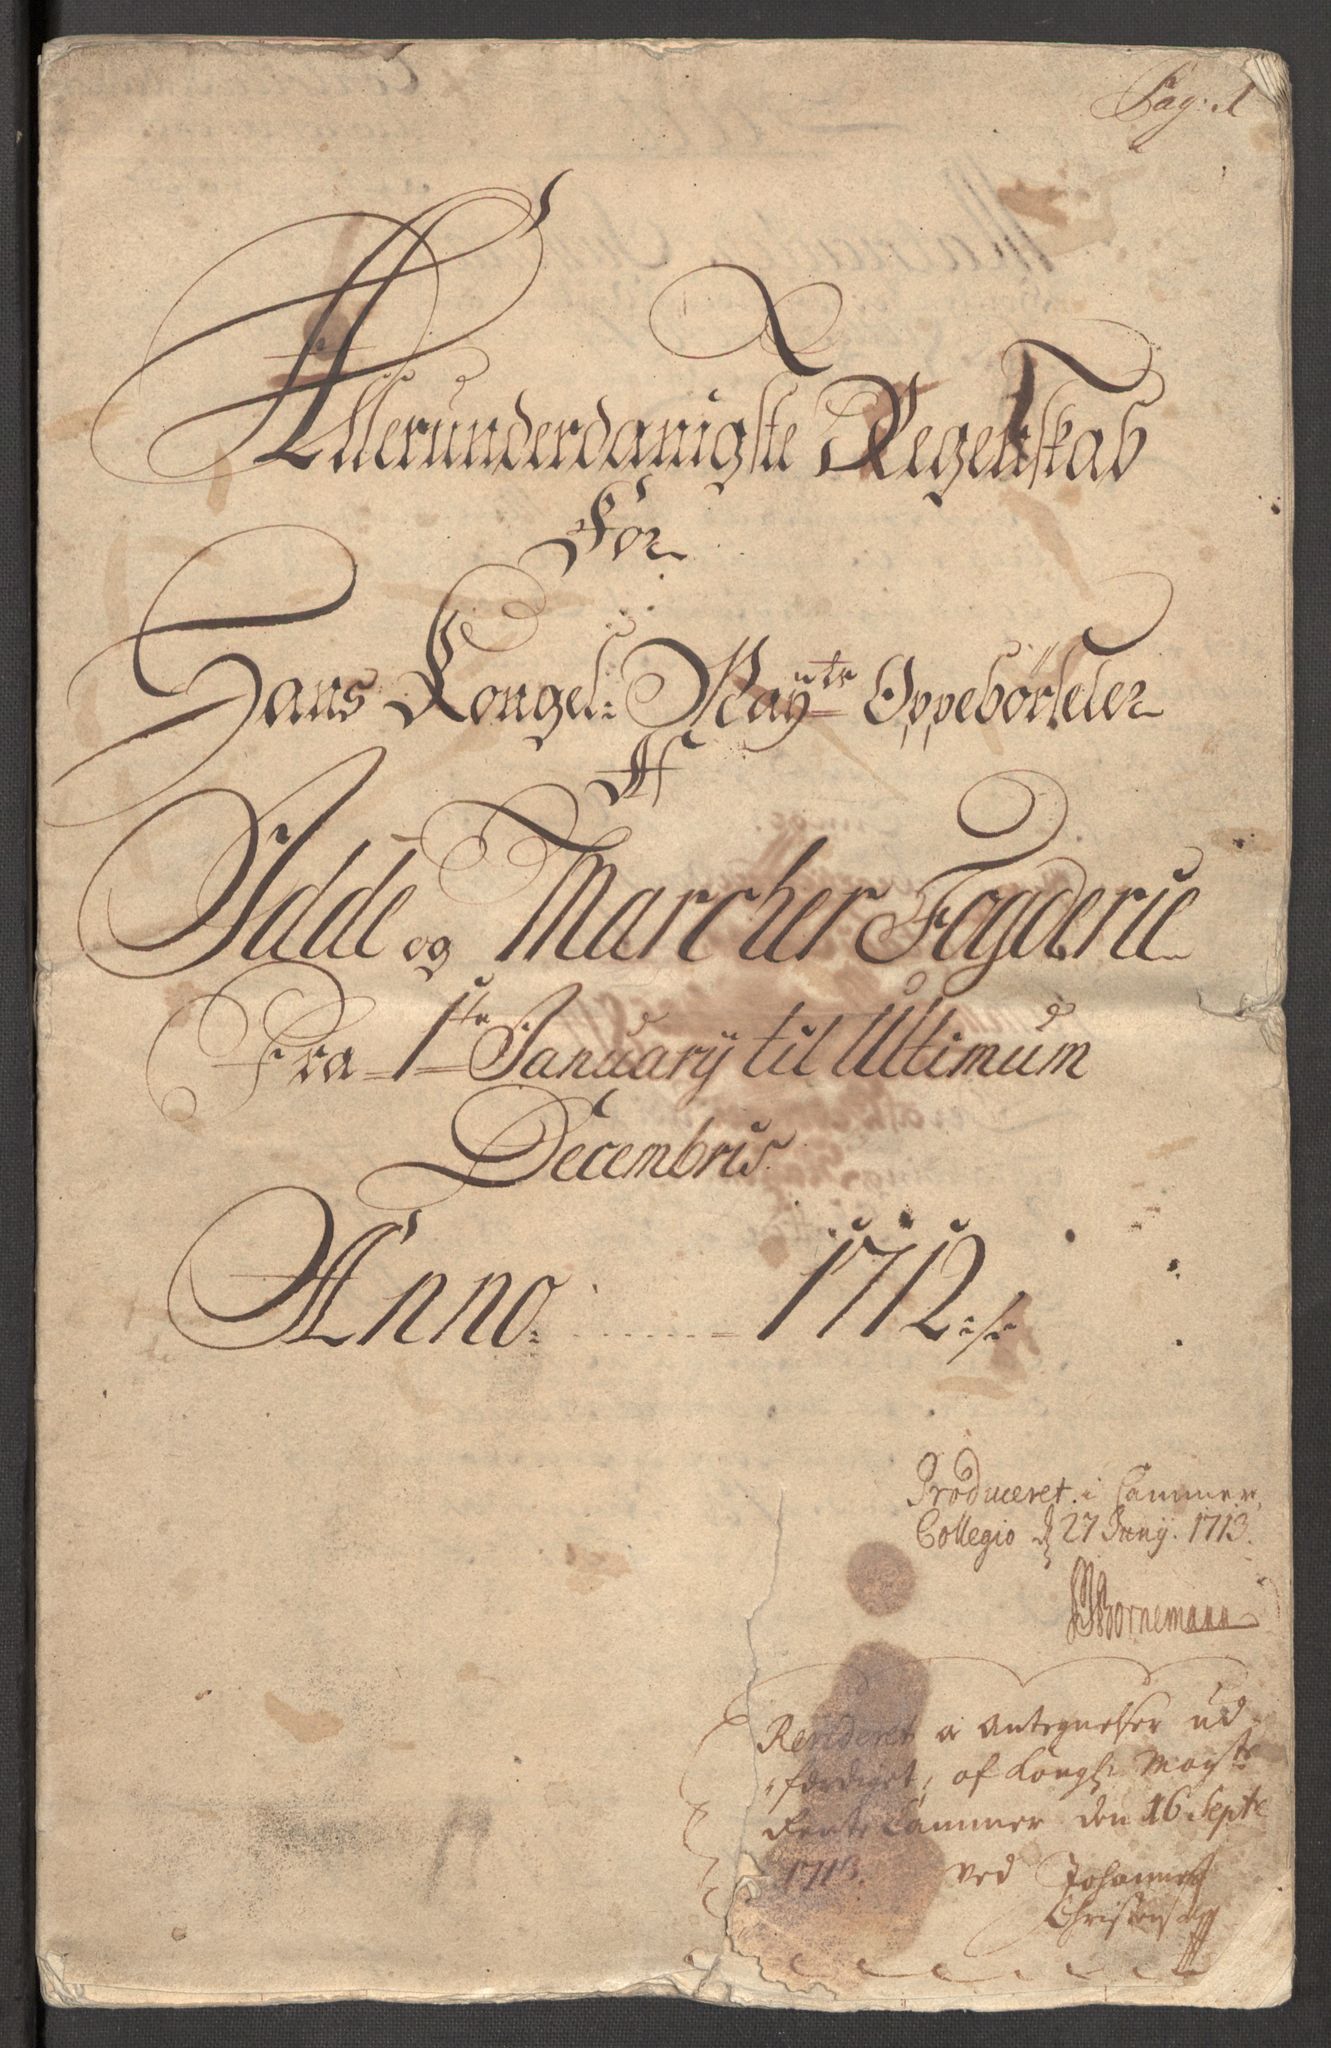 Pag: 1
Allerunderdanigste Regenskab
For
Hans Kongel: Maÿts Oppebørseler
Af
Idde og Marcher Fogderie
Fra 1te Januarÿ til Ultimum
Decembris
Anno 1712
Produceret i Cammer
Collegio d 27 Junÿ. 1713.
Bornemann
Revideret og Antegnelser ud
færdiget, af Kongl: Mayts
Rente Cammer den 16 Septe
1713. ved Johannes
Christensen